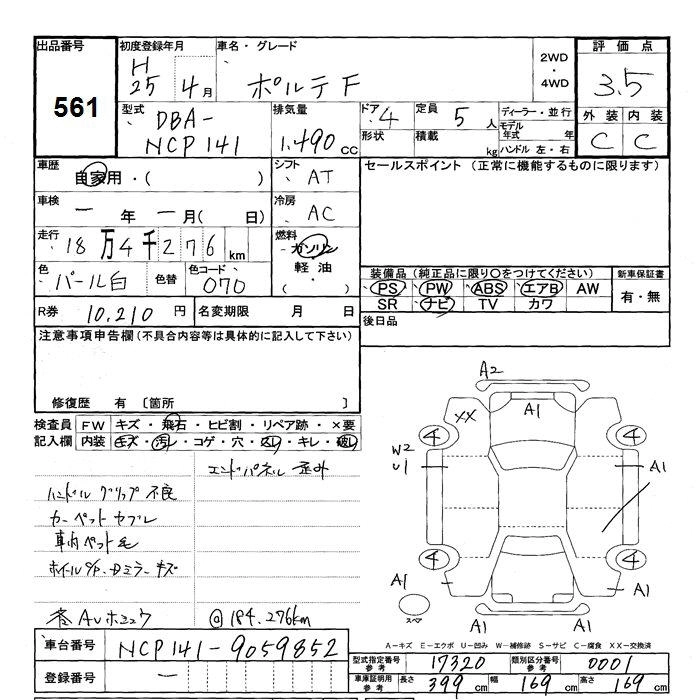 出品番号 初度登録年月 車名・グレード 2WD・4WD 評価点
561 H25 4月 ポルテ F 3.5
型式 DBA-NCP141 排気量 1.490 CC ドア 4 形状 定員 5 人 積載 kg ディーラー・並行 モデル年式 年 ハンドル 左・右 外装 内装
C C
車歴 自家用・( ) シフト AT セールスポイント (正常に機能するものに限ります)
車検 一 年 一 月( 日) 冷房 AC
走行 18万4千276 km 燃料 ガソリン 軽油・( )
色 パール白 色替 色コード 070 装備品(純正品に限り○をつけてください) 新車保証書
PS PW ABS エアB AW 有・無
SR ナビ TV カワ
R券 10,210 円 名変期限 月 日 後日品
注意事項申告欄(不具合内容等は具体的に記入して下さい)
修復歴 有 〔箇所 〕
検査員記入欄 FW キズ・飛石・ヒビ割・リペア跡・×要
内装 キズ・汚レ・コゲ・穴・スレ・キレ・破レ
エンドパネル 歪み
ハンドル グリップ 不良
カーペット ヤブレ
車内ペット毛
ホイールC/P. Dミラーキズ
@ 184.276km
A2
A1
XX
4 4
W2
U1 A1
4 4
A1 A1
A1
スペア
A-キズ E-エクボ U-凹み W-補修跡 S-サビ C-腐食 XX-交換済
車台番号 NCP141-9059852 型式指定番号 参考 17320 類別区分番号 参考 0001
登録番号 一 車庫証明用 参考 長さ 399 cm 幅 169 cm 高さ 169 cm